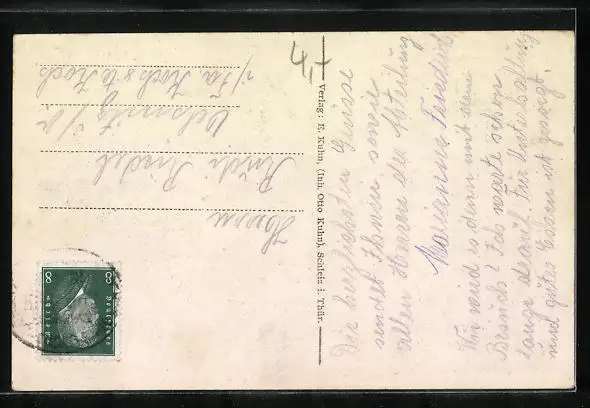 Die herzlichsten Grüsse
sendet Ihnen, sowie
allen Herren der Abteilung
Marianne Friedrich
Wie wird es denn mit dem
Besuch? Ich warte schon
lange darauf. Für Unterhaltung
und gutes Essen ist gesorgt.
Verlag: E. Kuhn, (Inh. Otto Kuhn), Schleiz i. Thür.
Herrn
Riedel
Oelsnitz i/V
i/Fa. Koch & te Kock
4,-
Deutsches Reich
8 8